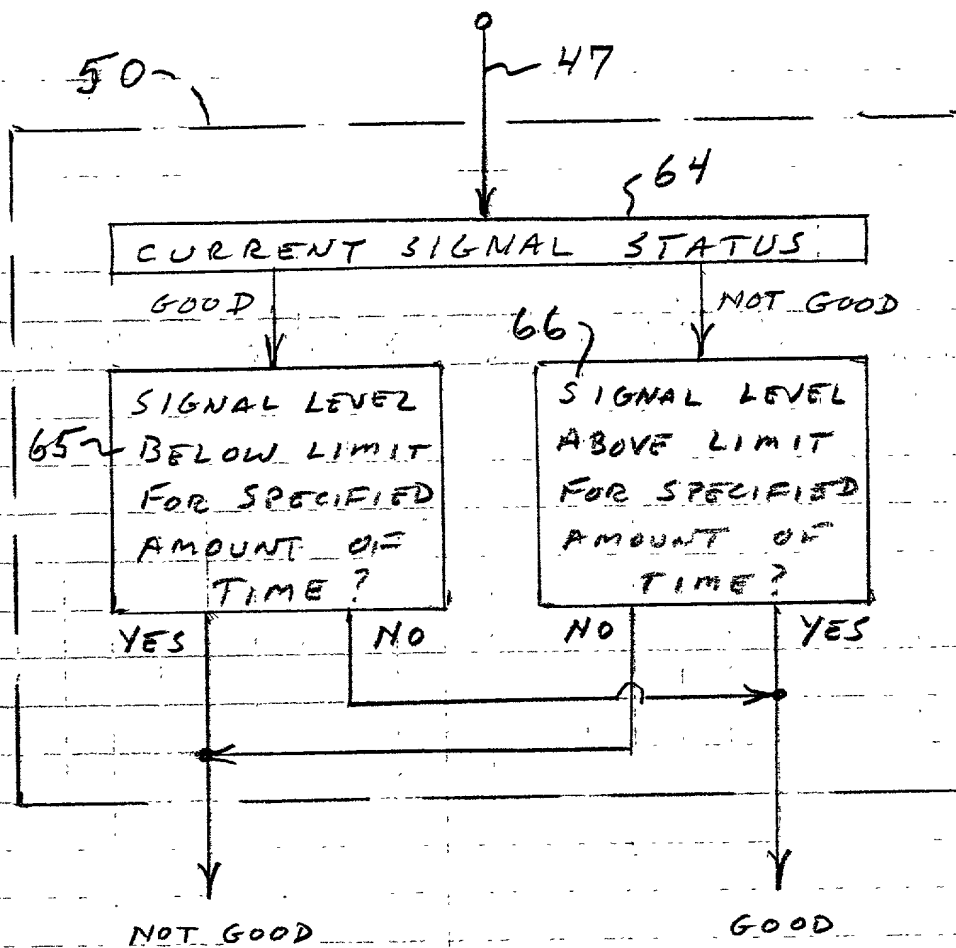 50
47
64
CURRENT SIGNAL STATUS
GOOD
NOT GOOD
66
65
SIGNAL LEVEL
BELOW LIMIT
FOR SPECIFIED
AMOUNT OF
TIME?
SIGNAL LEVEL
ABOVE LIMIT
FOR SPECIFIED
AMOUNT OF
TIME?
YES
NO
NO
YES
NOT GOOD
GOOD